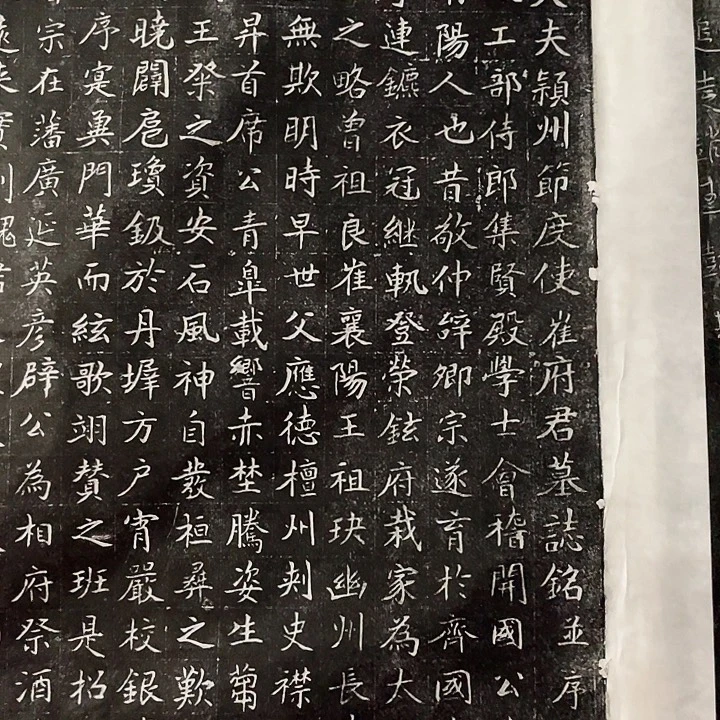 夫潁州節度使崔府君墓誌銘並序
工部侍郎集賢殿學士會稽開國公
陽人也昔敬仲辝卿宗遂育於齊國
連鑣衣冠継軌登荣鉉府栽家為大
之略曾祖良崔襄陽王祖玦幽州長
無欺明時早世父應德檀州刾史襟
昇首席公青皐載響赤埜騰姿生
王粲之資安石風神自發桓彞之歎
曉闢扈瓊鈒於丹墀方户宵嚴校銀
序寔兾門華而絃歌翊賛之班是招
宗在藩廣延英彦辟公為相府祭酒